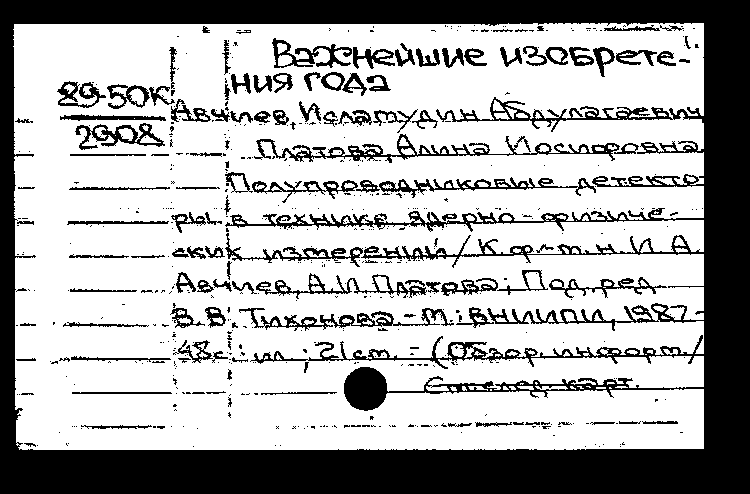 1.
Важнейшие изобрете-
ния года
89-50К
2908
Авчиев, Исламудин Абдулагаевич,
Платова, Алина Иосифовна.
Полупроводниковые детекто-
ры в технике ядерно-физиче-
ских измерений / К.ф.-м.н. И.А.
Авчиев, А.И. Платова; Под ред.
В.В. Тихонова. - М.: ВНИИПИ, 1987 -
48с.: ил.; 21см. - (Обзор. информ./
См. след. карт.